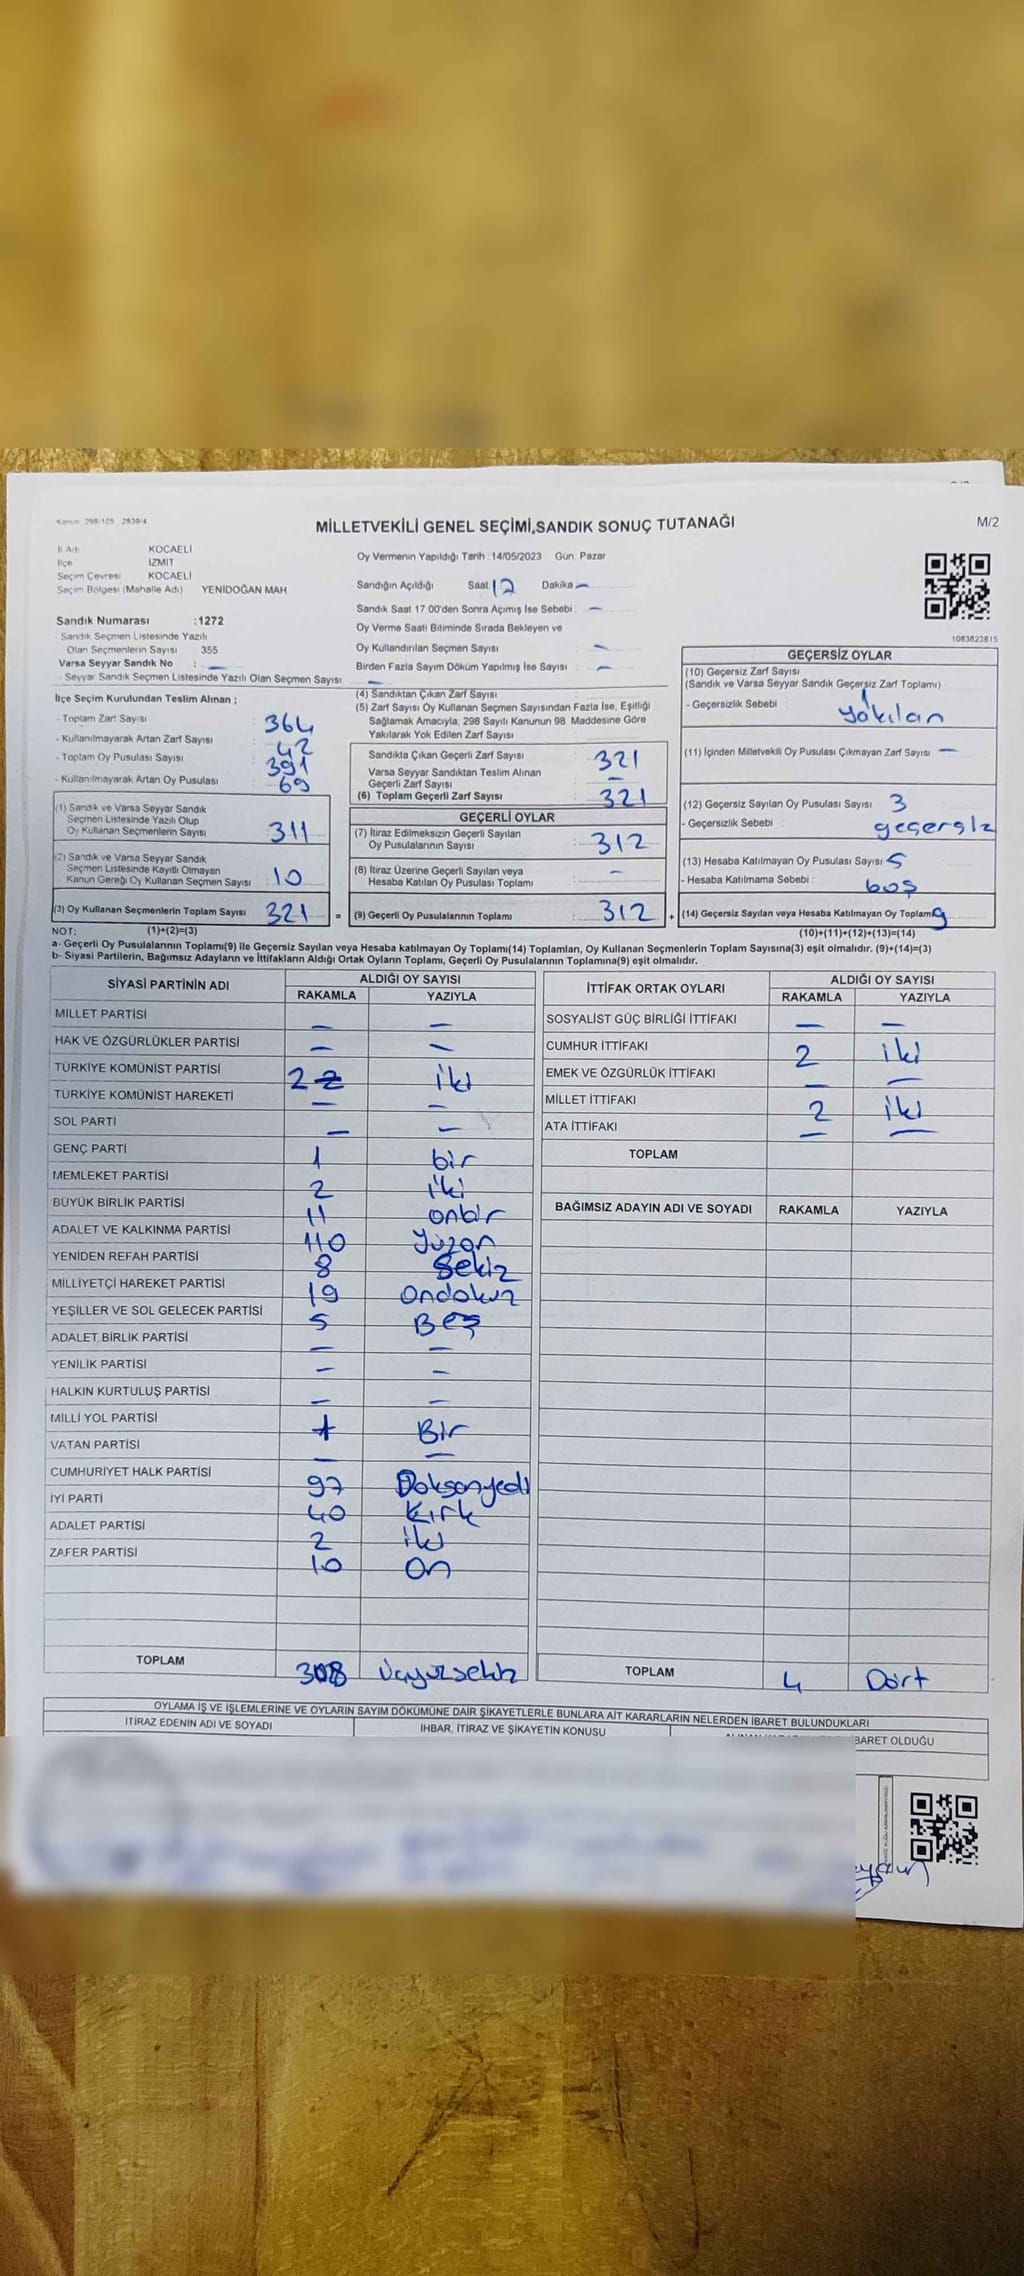 Kanun: 298/105 , 2839/4
MİLLETVEKİLİ GENEL SEÇİMİ,SANDIK SONUÇ TUTANAĞI
M/2
İl Adı KOCAELİ
İlçe İZMİT
Seçim Çevresi KOCAELİ
Seçim Bölgesi (Mahalle Adı) YENİDOĞAN MAH
Oy Vermenin Yapıldığı Tarih :14/05/2023 Gün: Pazar
Sandığın Açıldığı Saat 12 Dakika —
Sandık Saat 17.00'den Sonra Açımış İse Sebebi : —
Oy Verme Saati Bitiminde Sırada Bekleyen ve
Oy Kullandırılan Seçmen Sayısı —
Birden Fazla Sayım Döküm Yapılmış İse Sayısı : —
Sandık Numarası :1272
- Sandık Seçmen Listesinde Yazılı
Olan Seçmenlerin Sayısı 355
Varsa Seyyar Sandık No : —
- Seyyar Sandık Seçmen Listesinde Yazılı Olan Seçmen Sayısı : —
1083823815
İlçe Seçim Kurulundan Teslim Alınan ;
- Toplam Zarf Sayısı : 364
- Kullanılmayarak Artan Zarf Sayısı : 42
- Toplam Oy Pusulası Sayısı : 391
- Kullanılmayarak Artan Oy Pusulası : 69
(1) Sandık ve Varsa Seyyar Sandık
Seçmen Listesinde Yazılı Olup
Oy Kullanan Seçmenlerin Sayısı : 311
(2) Sandık ve Varsa Seyyar Sandık
Seçmen Listesinde Kayıtlı Olmayan
Kanun Gereği Oy Kullanan Seçmen Sayısı : 10
(3) Oy Kullanan Seçmenlerin Toplam Sayısı 321 =
(4) Sandıktan Çıkan Zarf Sayısı :
(5) Zarf Sayısı Oy Kullanan Seçmen Sayısından Fazla İse, Eşitliği
Sağlamak Amacıyla; 298 Sayılı Kanunun 98. Maddesine Göre
Yakılarak Yok Edilen Zarf Sayısı
Sandıkta Çıkan Geçerli Zarf Sayısı : 321
Varsa Seyyar Sandıktan Teslim Alınan
Geçerli Zarf Sayısı : —
(6) Toplam Geçerli Zarf Sayısı : 321
GEÇERLİ OYLAR
(7) İtiraz Edilmeksizin Geçerli Sayılan
Oy Pusulalarının Sayısı : 312
(8) İtiraz Üzerine Geçerli Sayılan veya
Hesaba Katılan Oy Pusulası Toplamı : —
(9) Geçerli Oy Pusulalarının Toplamı : 312 +
GEÇERSİZ OYLAR
(10) Geçersiz Zarf Sayısı
(Sandık ve Varsa Seyyar Sandık Geçersiz Zarf Toplamı) : 1
- Geçersizlik Sebebi : yakılan
(11) İçinden Milletvekili Oy Pusulası Çıkmayan Zarf Sayısı —
(12) Geçersiz Sayılan Oy Pusulası Sayısı 3
- Geçersizlik Sebebi : geçersiz
(13) Hesaba Katılmayan Oy Pusulası Sayısı 5
- Hesaba Katılmama Sebebi : boş
(14) Geçersiz Sayılan veya Hesaba Katılmayan Oy Toplamı 9
NOT: (1)+(2)=(3)
(10)+(11)+(12)+(13)=(14)
a- Geçerli Oy Pusulalarının Toplamı(9) ile Geçersiz Sayılan veya Hesaba katılmayan Oy Toplamı(14) Toplamları, Oy Kullanan Seçmenlerin Toplam Sayısına(3) eşit olmalıdır. (9)+(14)=(3)
b- Siyasi Partilerin, Bağımsız Adayların ve İttifakların Aldığı Ortak Oyların Toplamı, Geçerli Oy Pusulalarının Toplamına(9) eşit olmalıdır.
SİYASİ PARTİNİN ADI ALDIĞI OY SAYISI
RAKAMLA YAZIYLA
MİLLET PARTİSİ — —
HAK VE ÖZGÜRLÜKLER PARTİSİ — —
TÜRKİYE KOMÜNİST PARTİSİ 2 2 iki
TÜRKİYE KOMÜNİST HAREKETİ — —
SOL PARTİ — —
GENÇ PARTİ 1 bir
MEMLEKET PARTİSİ 2 iki
BÜYÜK BİRLİK PARTİSİ 11 onbir
ADALET VE KALKINMA PARTİSİ 110 Yüzon
YENİDEN REFAH PARTİSİ 8 Sekiz
MİLLİYETÇİ HAREKET PARTİSİ 19 Ondokuz
YEŞİLLER VE SOL GELECEK PARTİSİ 5 Beş
ADALET BİRLİK PARTİSİ — —
YENİLİK PARTİSİ — —
HALKIN KURTULUŞ PARTİSİ — —
MİLLİ YOL PARTİSİ 1 Bir
VATAN PARTİSİ — —
CUMHURİYET HALK PARTİSİ 97 Doksanyedi
İYİ PARTİ 40 Kırk
ADALET PARTİSİ 2 iki
ZAFER PARTİSİ 10 On
TOPLAM 308 Üçyüzsekiz
İTTİFAK ORTAK OYLARI ALDIĞI OY SAYISI
RAKAMLA YAZIYLA
SOSYALİST GÜÇ BİRLİĞİ İTTİFAKI — —
CUMHUR İTTİFAKI 2 iki
EMEK VE ÖZGÜRLÜK İTTİFAKI — —
MİLLET İTTİFAKI 2 iki
ATA İTTİFAKI — —
TOPLAM
BAĞIMSIZ ADAYIN ADI VE SOYADI RAKAMLA YAZIYLA
TOPLAM 4 Dört
OYLAMA İŞ VE İŞLEMLERİNE VE OYLARIN SAYIM DÖKÜMÜNE DAİR ŞİKAYETLERLE BUNLARA AİT KARARLARIN NELERDEN İBARET BULUNDUKLARI
İTİRAZ EDENİN ADI VE SOYADI
İHBAR, İTİRAZ VE ŞİKAYETİN KONUSU
BARET OLDUĞU